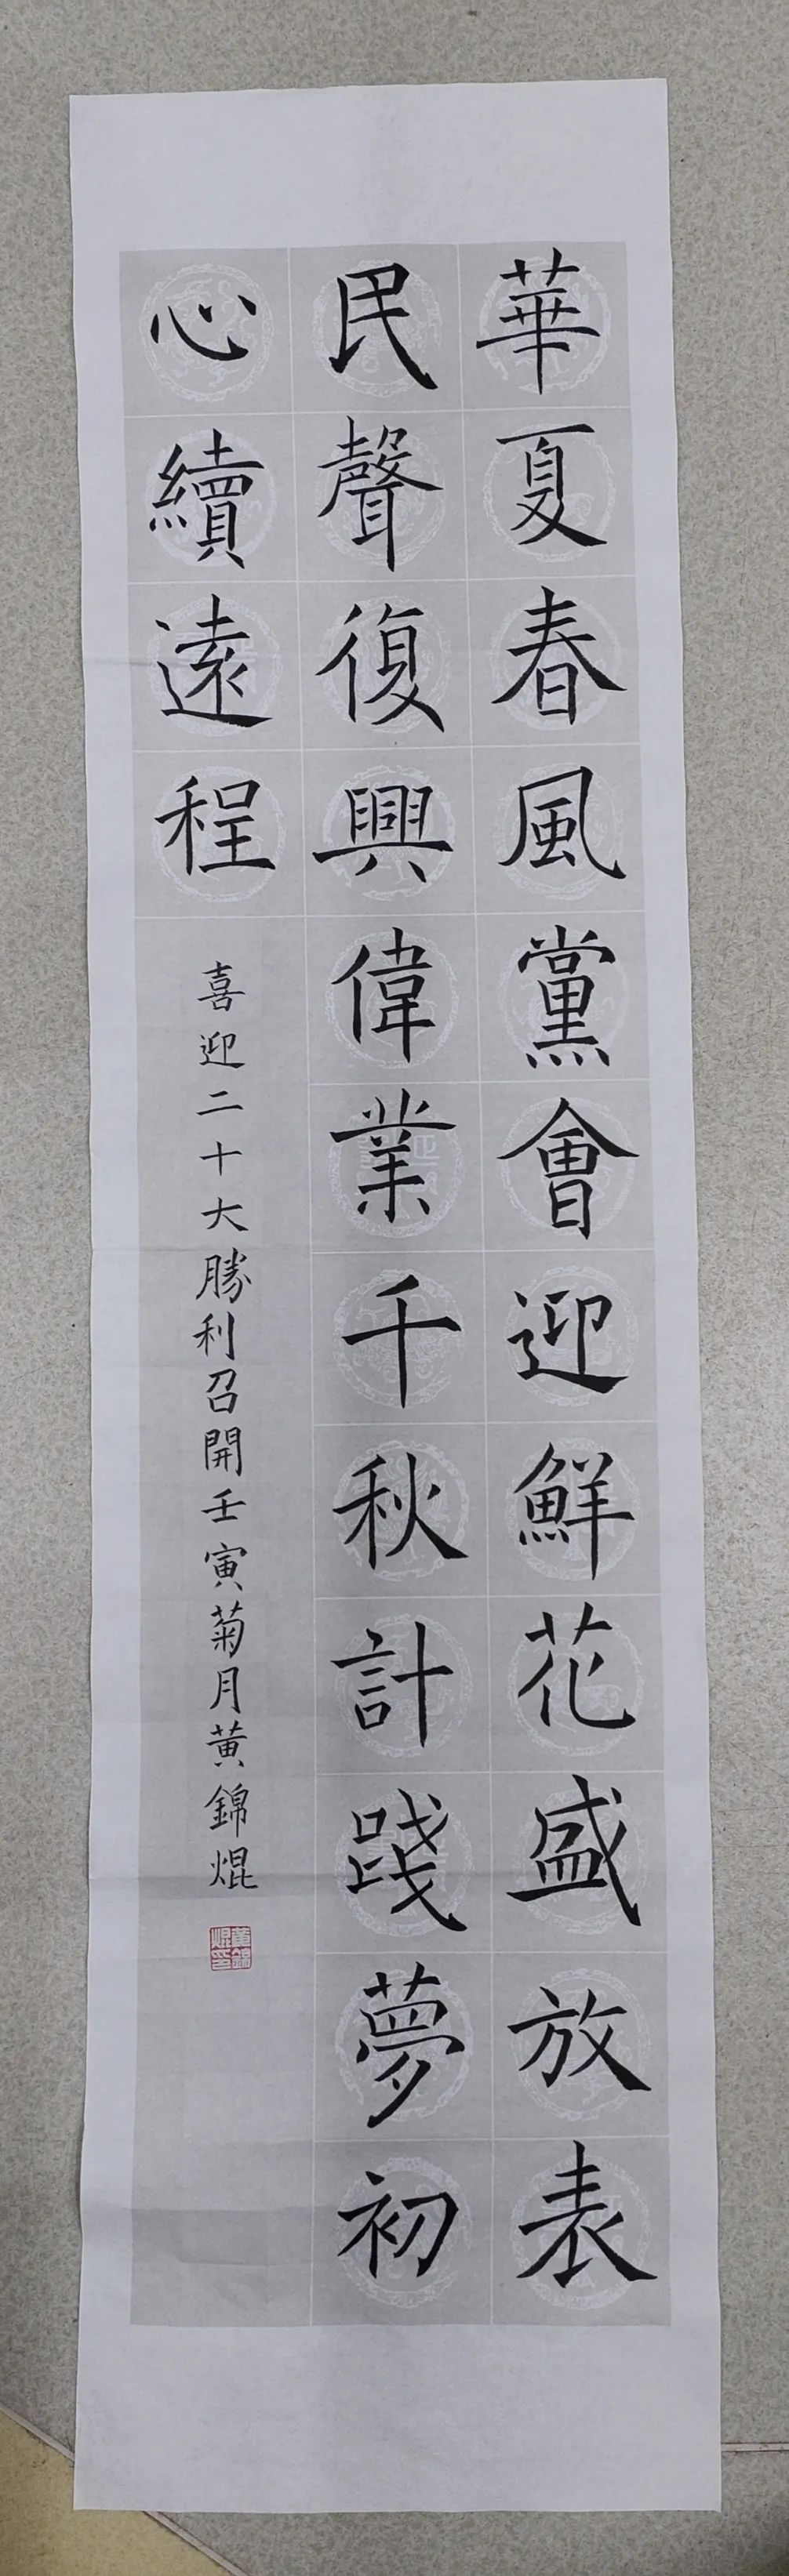 華夏春風黨會迎鮮花盛放表
民聲復興偉業千秋計踐夢初
心續遠程
喜迎二十大勝利召開壬寅菊月黃錦焜
黃錦焜印